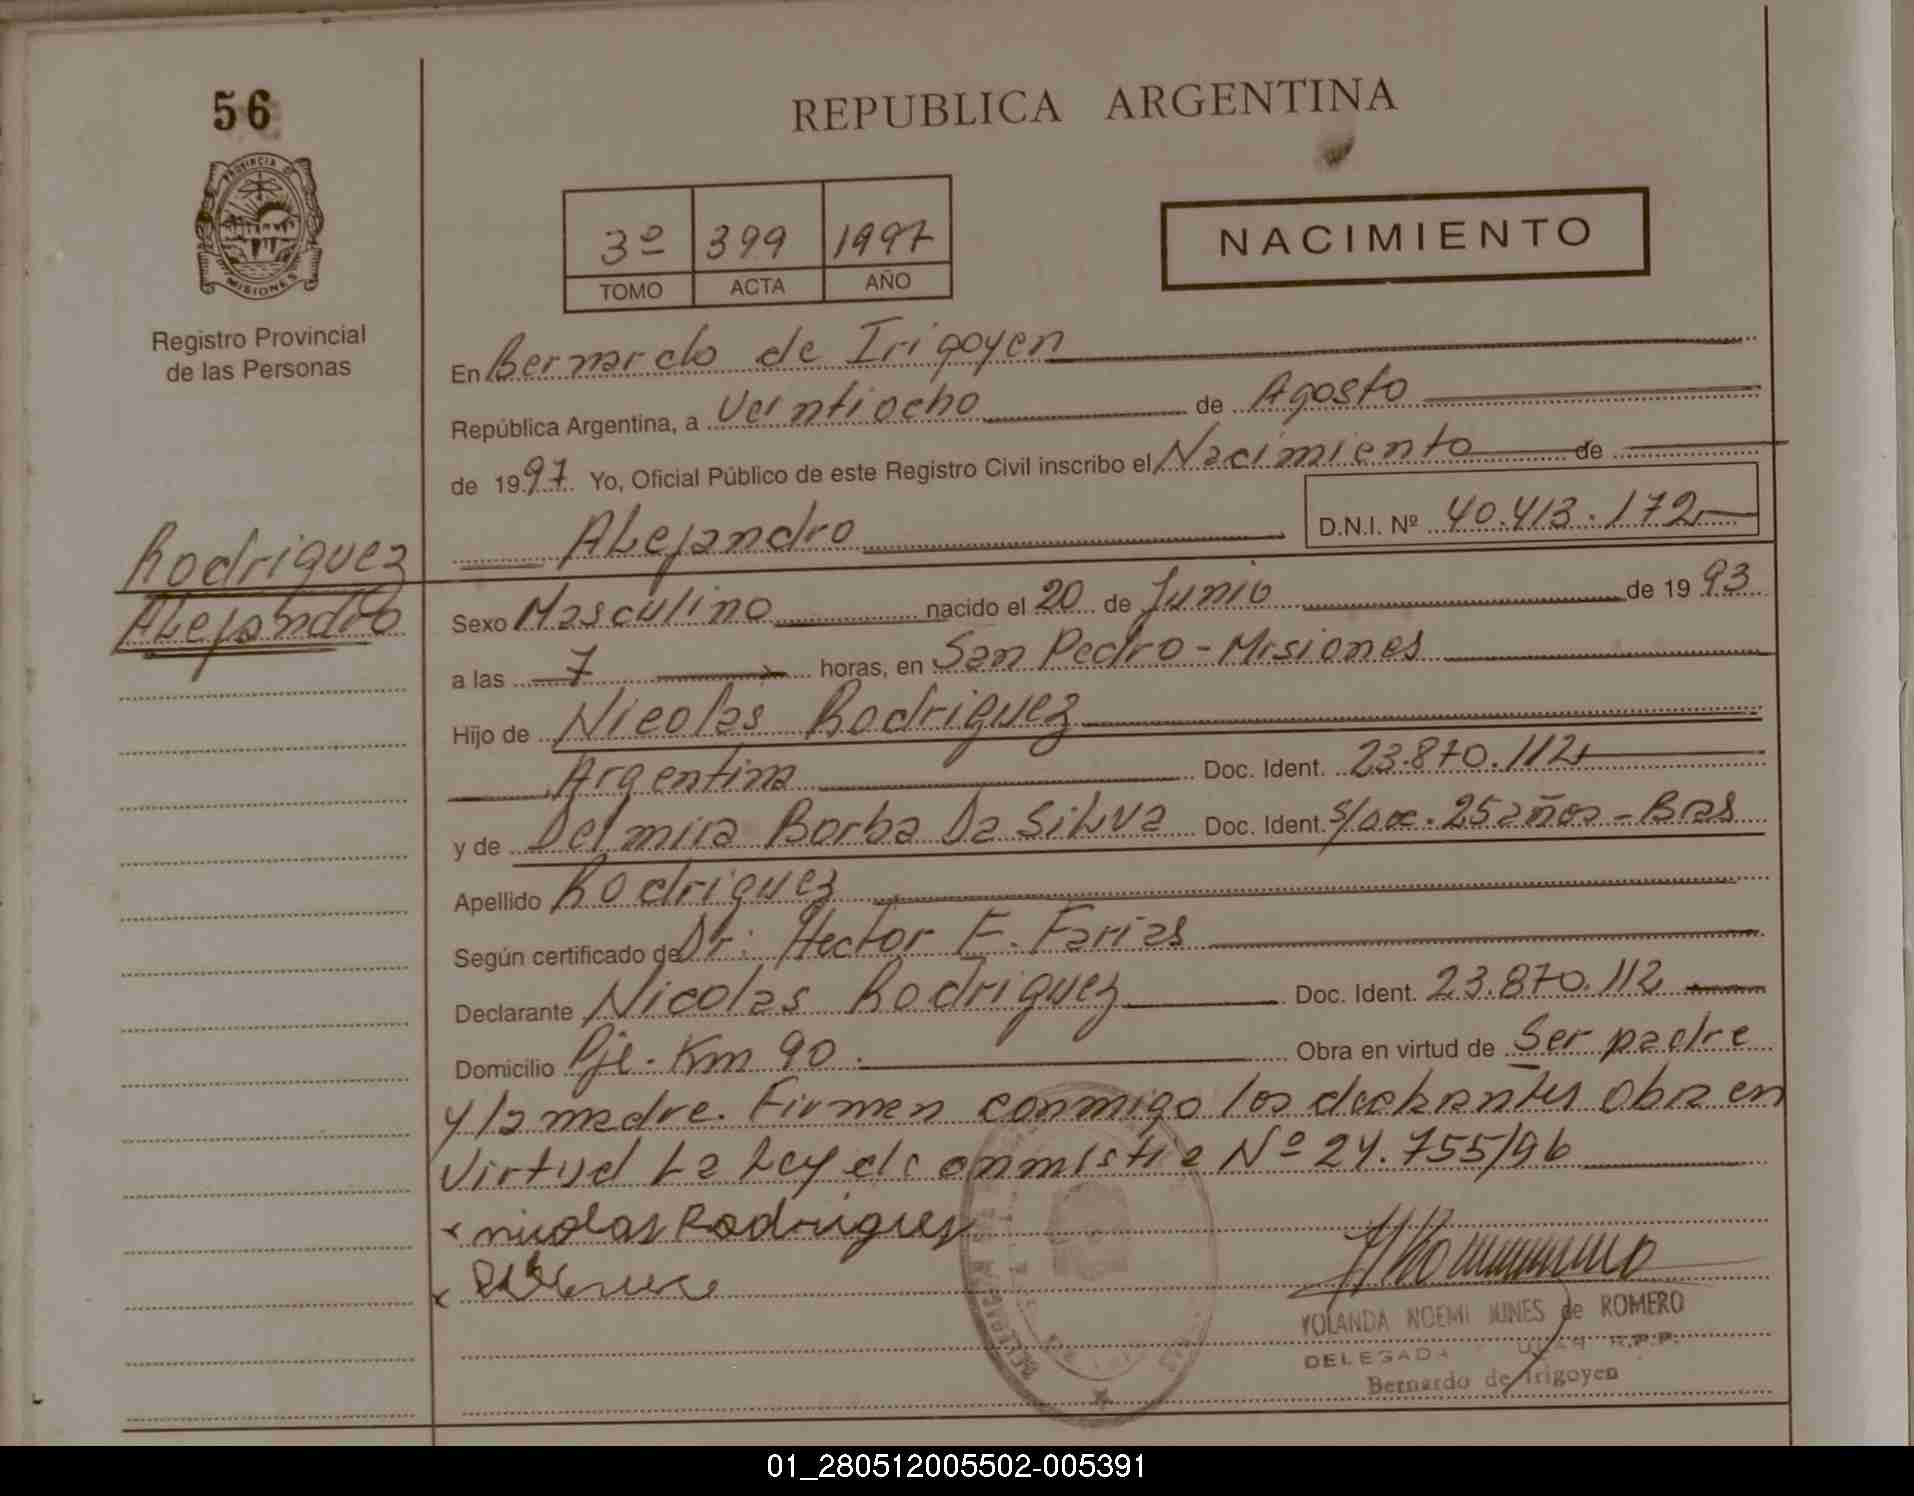 56
PROVINCIA DE
MISIONES
Registro Provincial
de las Personas
Rodriguez
Alejandro
REPUBLICA ARGENTINA
3º 399 1997
TOMO ACTA AÑO
NACIMIENTO
En Bernardo de Irigoyen
República Argentina, a Veintiocho de Agosto
de 1997 Yo, Oficial Público de este Registro Civil inscribo el Nacimiento de
Alejandro D.N.I. Nº 40.413.172
Sexo Masculino nacido el 20 de Junio de 1993
a las 7 horas, en San Pedro - Misiones
Hijo de Nicolas Rodriguez
Argentina Doc. Ident. 23.870.112
y de Delmira Borba Da Silva Doc. Ident. s/doc. 25 años - Bras
Apellido Rodriguez
Según certificado de Dr: Hector E. Farias
Declarante Nicolas Rodriguez Doc. Ident. 23.870.112
Domicilio Pje. Km 90. Obra en virtud de Ser padre
y la madre. Firman conmigo los declarantes Obra en
Virtud La Ley de anmistia Nº 24.755/96
x nicolas Rodrigues
x
YOLANDA NOEMI JUNES de ROMERO
DELEGADA R.P.P.
Bernardo de Irigoyen
01_280512005502-005391